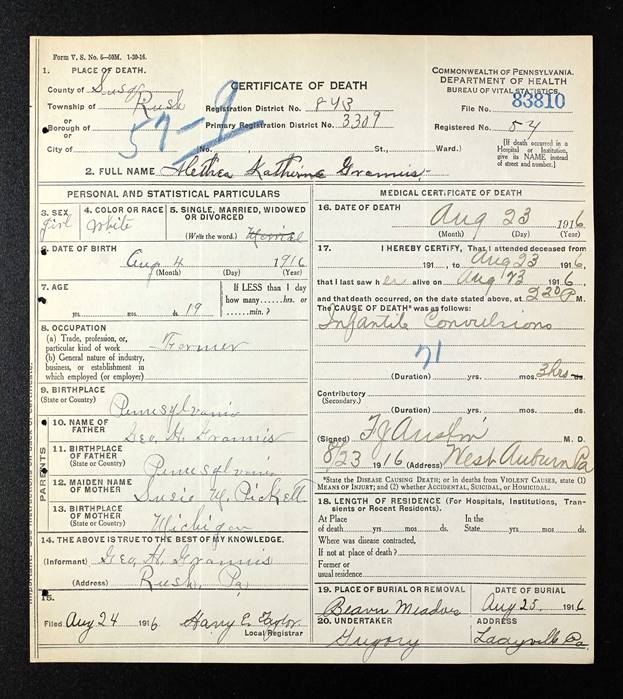 Form V. S. No. 5—50M. 1-20-16.
1. PLACE OF DEATH.
County of Susq
Township of Rush
or
Borough of
or
City of
57-9
CERTIFICATE OF DEATH
Registration District No. 843
Primary Registration District No. 3309
No. St., Ward.)
COMMONWEALTH OF PENNSYLVANIA.
DEPARTMENT OF HEALTH
BUREAU OF VITAL STATISTICS.
File No. 83810
Registered No. 54
[If death occurred in a
Hospital or Institution,
give its NAME instead
of street and number.]
2. FULL NAME Alethea Katherine Grannis
PERSONAL AND STATISTICAL PARTICULARS
3. SEX
girl
4. COLOR OR RACE
White
5. SINGLE, MARRIED, WIDOWED
OR DIVORCED
(Write the word.)
6. DATE OF BIRTH
Aug 4 1916
(Month) (Day) (Year)
7. AGE
yrs. mos. 19 ds.
If LESS than 1 day
how many......hrs. or
......min.?
8. OCCUPATION
(a) Trade, profession, or
particular kind of work Farmer
(b) General nature of industry,
business, or establishment in
which employed (or employer)
9. BIRTHPLACE
(State or Country)
Pennsylvania
PARENTS
10. NAME OF
FATHER
Geo. H. Grannis
11. BIRTHPLACE
OF FATHER
(State or Country)
Pennsylvania
12. MAIDEN NAME
OF MOTHER
Susie M. Pickett
13. BIRTHPLACE
OF MOTHER
(State or Country)
Michigan
14. THE ABOVE IS TRUE TO THE BEST OF MY KNOWLEDGE.
(Informant) Geo. H. Grannis
(Address) Rush, Pa
15.
Filed Aug 24 1916 Harry E. Taylor
Local Registrar
MEDICAL CERTIFICATE OF DEATH
16. DATE OF DEATH
Aug 23 1916
(Month) (Day) (Year)
17. I HEREBY CERTIFY, That I attended deceased from
191 , to Aug 23 1916,
that I last saw her alive on Aug 23 1916,
and that death occurred, on the date stated above, at 2 20 P M.
The CAUSE OF DEATH* was as follows:
Infantile Convulsions
71
(Duration) yrs. mos. 3 hrs ds.
Contributory
(Secondary.)
(Duration) yrs. mos. ds.
(Signed) F J Austin M. D.
8/23 1916 (Address) West Auburn Pa
*State the DISEASE CAUSING DEATH; or in deaths from VIOLENT CAUSES, state (1)
MEANS OF INJURY; and (2) whether ACCIDENTAL, SUICIDAL, or HOMICIDAL.
18. LENGTH OF RESIDENCE (For Hospitals, Institutions, Tran-
sients or Recent Residents).
At Place
of death yrs. mos. ds.
In the
State yrs. mos. ds.
Where was disease contracted,
if not at place of death?
Former or
usual residence
19. PLACE OF BURIAL OR REMOVAL
Beaver Meadows
DATE OF BURIAL
Aug 25 1916
20. UNDERTAKER
Gregory
ADDRESS
Laceyville Pa